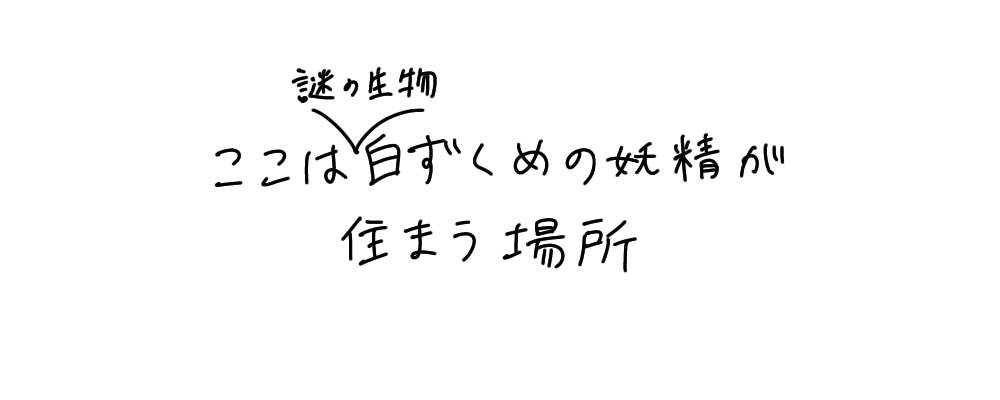 謎の生物
ここは白ずくめの妖精が
住まう場所